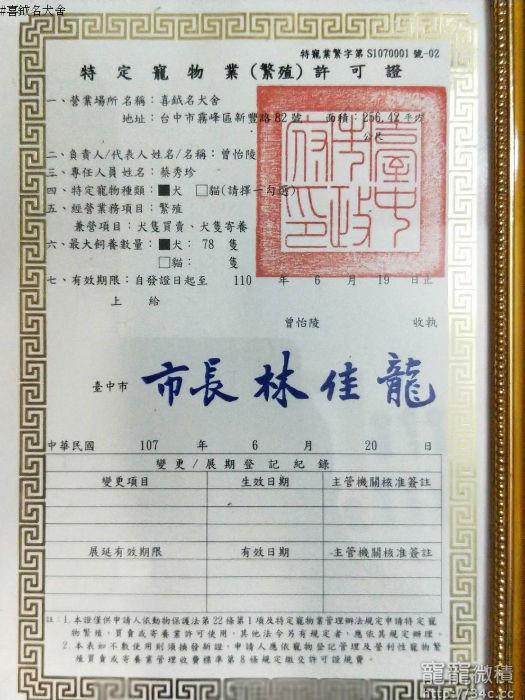 #喜鉞名犬舍
特寵業繁字第 S1070001 號-02
特定寵物業(繁殖)許可證
一、營業場所名稱：喜鉞名犬舍
地址：台中市霧峰區新豐路82號 面積：256.42 平方公尺
二、負責人/代表人姓名/名稱：曾怡陵
三、專任人員姓名：蔡秀珍
四、特定寵物種類：■犬 □貓(請擇一勾選)
五、經營業務項目：繁殖
兼營項目：犬隻買賣、犬隻寄養
六、最大飼養數量：■犬： 78 隻
□貓： 隻
七、有效期限：自發證日起至 110 年 6 月 19 日止
上 給
曾怡陵 收執
臺中市 市長 林佳龍
中華民國 107 年 6 月 20 日
變更/展期登記紀錄
變更項目 生效日期 主管機關核准簽註
展延有效期限 有效日期 主管機關核准簽註
註：1.本證僅供申請人依動物保護法第22條第1項及特定寵物業管理辦法規定申請特定寵
物繁殖、買賣或寄養業許可使用，其他法令另有規定者，應依其規定辦理。
2.本表如不敷使用則須換發新證，申請人應依寵物登記管理及營利性寵物繁殖
買賣或寄養業管理收費標準第8條規定繳交許可證規費。
臺中市政府印
寵寵微積
http://34c.cc